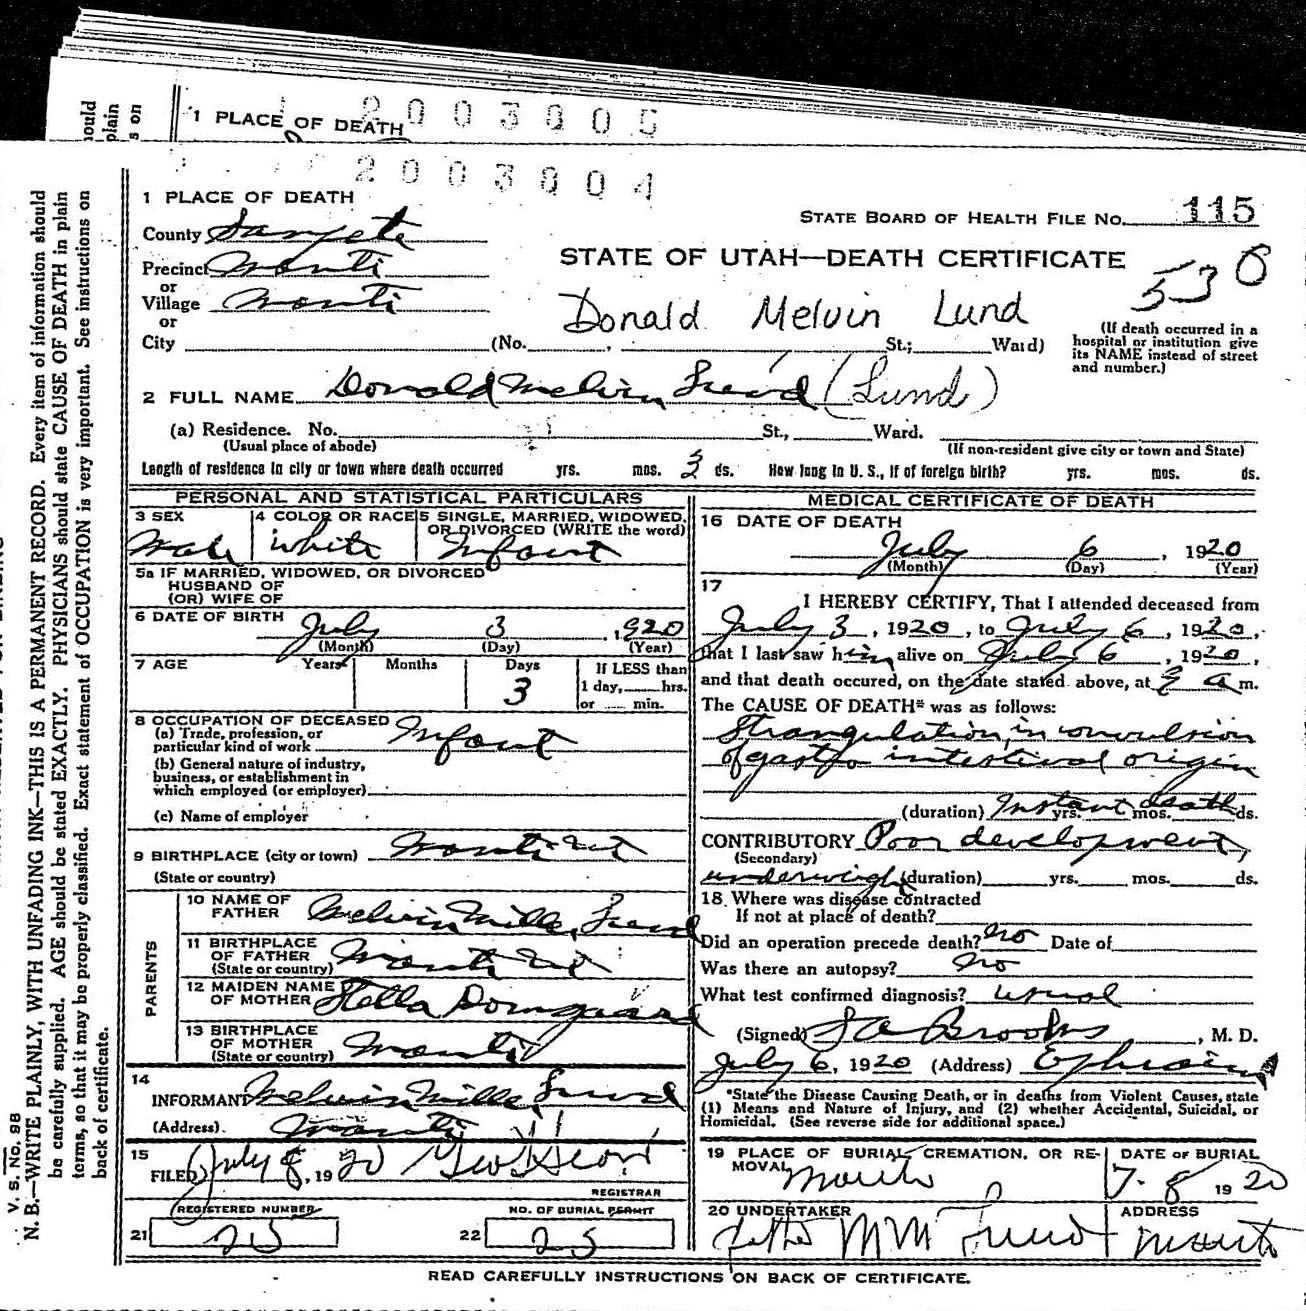 1 PLACE OF DEATH
2003005
2003004
1 PLACE OF DEATH
STATE BOARD OF HEALTH FILE NO. 115
County Sanpete
STATE OF UTAH—DEATH CERTIFICATE
530
Precinct Manti
or
Village Manti
or
Donald Melvin Lund
City (No. , St.; Ward)
(If death occurred in a hospital or institution give its NAME instead of street and number.)
2 FULL NAME Donald Melvin Lund (Lund)
(a) Residence. No. St., Ward.
(Usual place of abode)
(If non-resident give city or town and State)
Length of residence in city or town where death occurred yrs. mos. 3 ds. How long in U. S., if of foreign birth? yrs. mos. ds.
PERSONAL AND STATISTICAL PARTICULARS
3 SEX Male
4 COLOR OR RACE White
5 SINGLE, MARRIED, WIDOWED, OR DIVORCED (WRITE the word) Infant
5a IF MARRIED, WIDOWED, OR DIVORCED
HUSBAND OF
(OR) WIFE OF
6 DATE OF BIRTH
July 3 , 1920
(Month) (Day) (Year)
7 AGE Years Months Days 3
If LESS than
1 day, hrs.
or min.
8 OCCUPATION OF DECEASED
(a) Trade, profession, or
particular kind of work Infant
(b) General nature of industry,
business, or establishment in
which employed (or employer)
(c) Name of employer
9 BIRTHPLACE (city or town) Manti Ut
(State or country)
PARENTS
10 NAME OF
FATHER Melvin Mills Lund
11 BIRTHPLACE
OF FATHER Manti Ut
(State or country)
12 MAIDEN NAME
OF MOTHER Stella Domgaard
13 BIRTHPLACE
OF MOTHER Manti
(State or country)
14
INFORMANT Melvin Mills Lund
(Address) Manti
15
FILED July 8, 1920
REGISTRAR
REGISTERED NUMBER
21 25
NO. OF BURIAL PERMIT
22 25
MEDICAL CERTIFICATE OF DEATH
16 DATE OF DEATH
July 6 , 1920
(Month) (Day) (Year)
17
I HEREBY CERTIFY, That I attended deceased from
July 3, 1920, to July 6, 1920,
that I last saw him alive on July 6, 1920,
and that death occured, on the date stated above, at a m.
The CAUSE OF DEATH* was as follows:
Strangulation, in convulsion
of gastro intestinal origin
(duration) Instant death yrs. mos. ds.
CONTRIBUTORY Poor development,
(Secondary)
underweight (duration) yrs. mos. ds.
18. Where was disease contracted
If not at place of death?
Did an operation precede death? No Date of
Was there an autopsy? No
What test confirmed diagnosis? usual
(Signed) Brooks, M. D.
July 6, 1920 (Address) Ephraim
*State the Disease Causing Death, or in deaths from Violent Causes, state
(1) Means and Nature of Injury, and (2) whether Accidental, Suicidal, or
Homicidal. (See reverse side for additional space.)
19 PLACE OF BURIAL, CREMATION, OR RE-
MOVAL Manti
DATE OF BURIAL
7-8 1920
20 UNDERTAKER
father M M Lund
ADDRESS
Manti
READ CAREFULLY INSTRUCTIONS ON BACK OF CERTIFICATE.
V. S. No. 98
N. B.—WRITE PLAINLY, WITH UNFADING INK—THIS IS A PERMANENT RECORD. Every item of information should
be carefully supplied. AGE should be stated EXACTLY. PHYSICIANS should state CAUSE OF DEATH in plain
terms, so that it may be properly classified. Exact statement of OCCUPATION is very important. See instructions on
back of certificate.